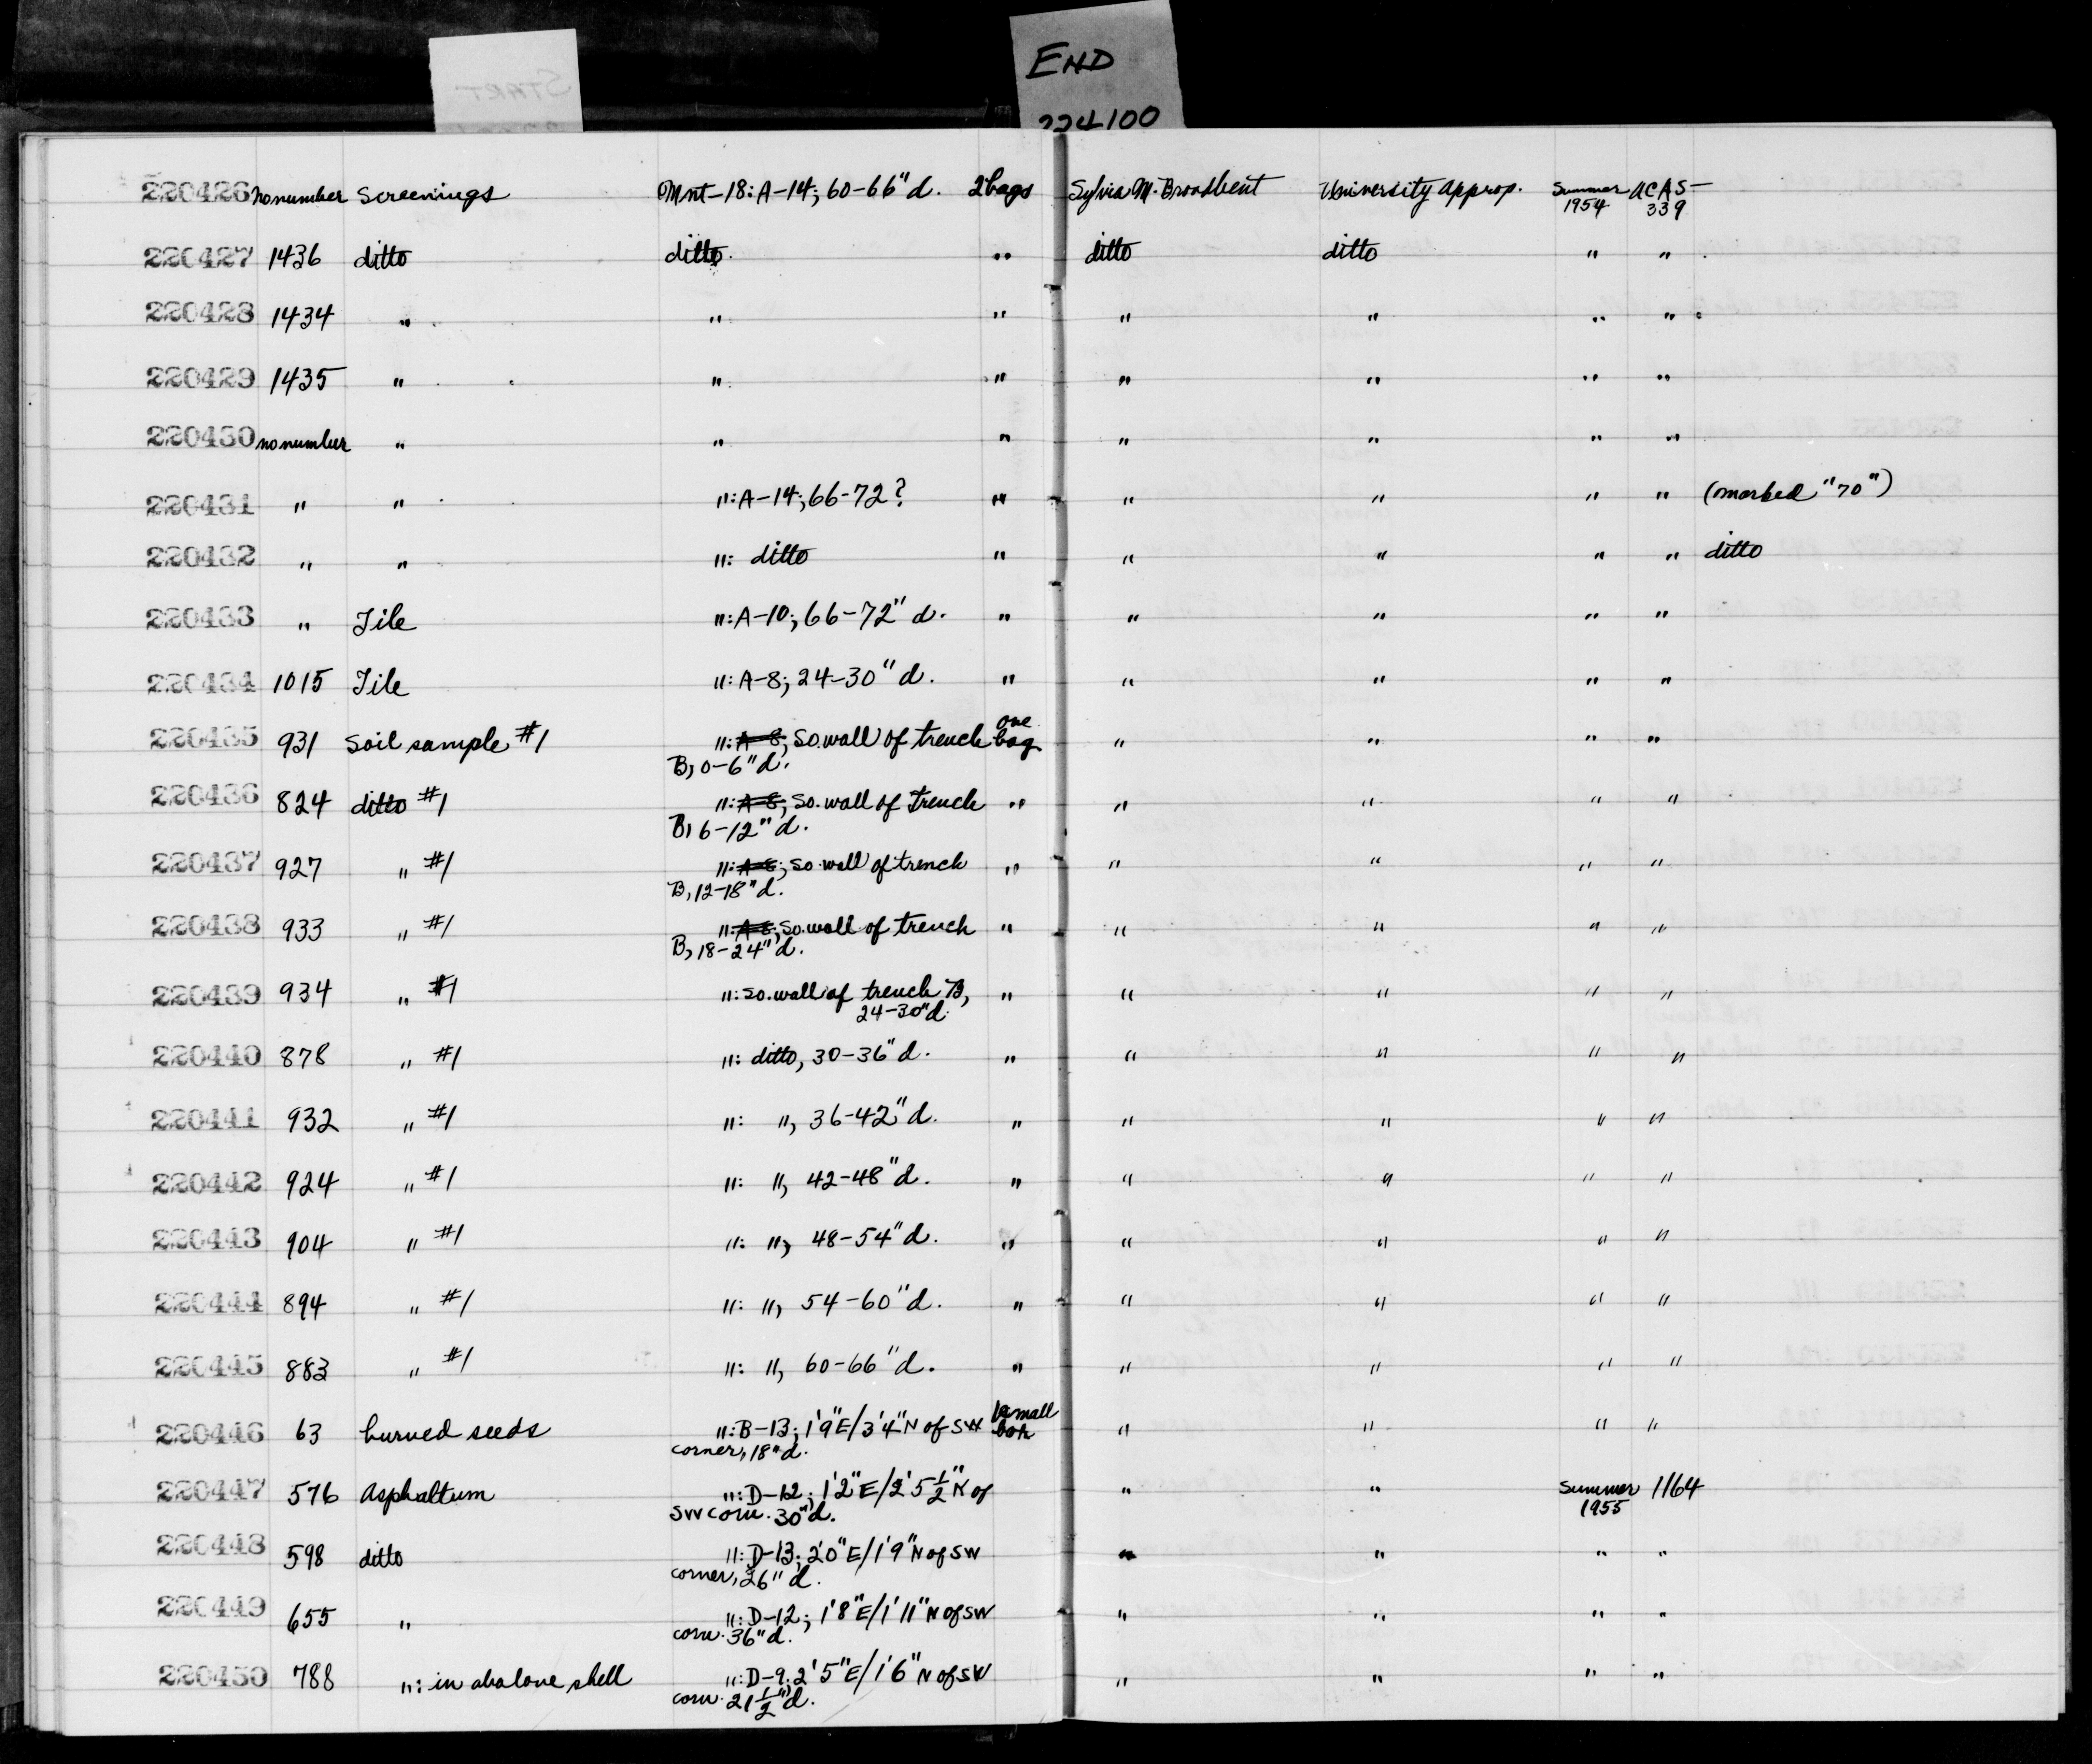 END
224100
220426 no number Screenings Mnt-18: A-14; 60-66" d. 2 bags Sylvia M. Broadbent University Approp. Summer 1954 UCAS-339
220427 1436 ditto ditto " ditto ditto " "
220428 1434 " " " " " " "
220429 1435 " " " " " " "
220430 no number " " " " " " "
220431 " " ": A-14; 66-72? " " " " " (marked "70")
220432 " " ": ditto " " " " " ditto
220433 " Tile ": A-10; 66-72" d. " " " " "
220434 1015 Tile ": A-8; 24-30" d. " " " " "
220435 931 Soil sample #1 ": A-8; So. wall of trench one bag " " " "
B, 0-6" d.
220436 824 ditto #1 ": A-8; So. wall of trench " " " " "
B, 6-12" d.
220437 927 " #1 ": A-8; So. wall of trench " " " " "
B, 12-18" d.
220438 933 " #1 ": A-8; So. wall of trench " " " " "
B, 18-24" d.
220439 934 " #1 ": So. wall of trench B, " " " " "
24-30" d.
220440 878 " #1 ": ditto, 30-36" d. " " " " "
220441 932 " #1 ": ", 36-42" d. " " " " "
220442 924 " #1 ": ", 42-48" d. " " " " "
220443 904 " #1 ": ", 48-54" d. " " " " "
220444 894 " #1 ": ", 54-60" d. " " " " "
220445 883 " #1 ": ", 60-66" d. " " " " "
220446 63 burned seeds ": B-13; 1'9" E/3'4" N of SW small " " " "
corner, 18" d.
220447 576 Asphaltum ": D-12; 1'2" E/2'5½" N of " " Summer 1955 1164
SW corn. 30" d.
220448 598 ditto ": D-13; 2'0" E/1'9" N of SW " " " "
corner, 26" d.
220449 655 " ": D-12; 1'8" E/1'11" N of SW " " " "
corn. 36" d.
220450 788 ": in abalone shell ": D-9; 2'5" E/1'6" N of SW " " " "
corn. 21½" d.